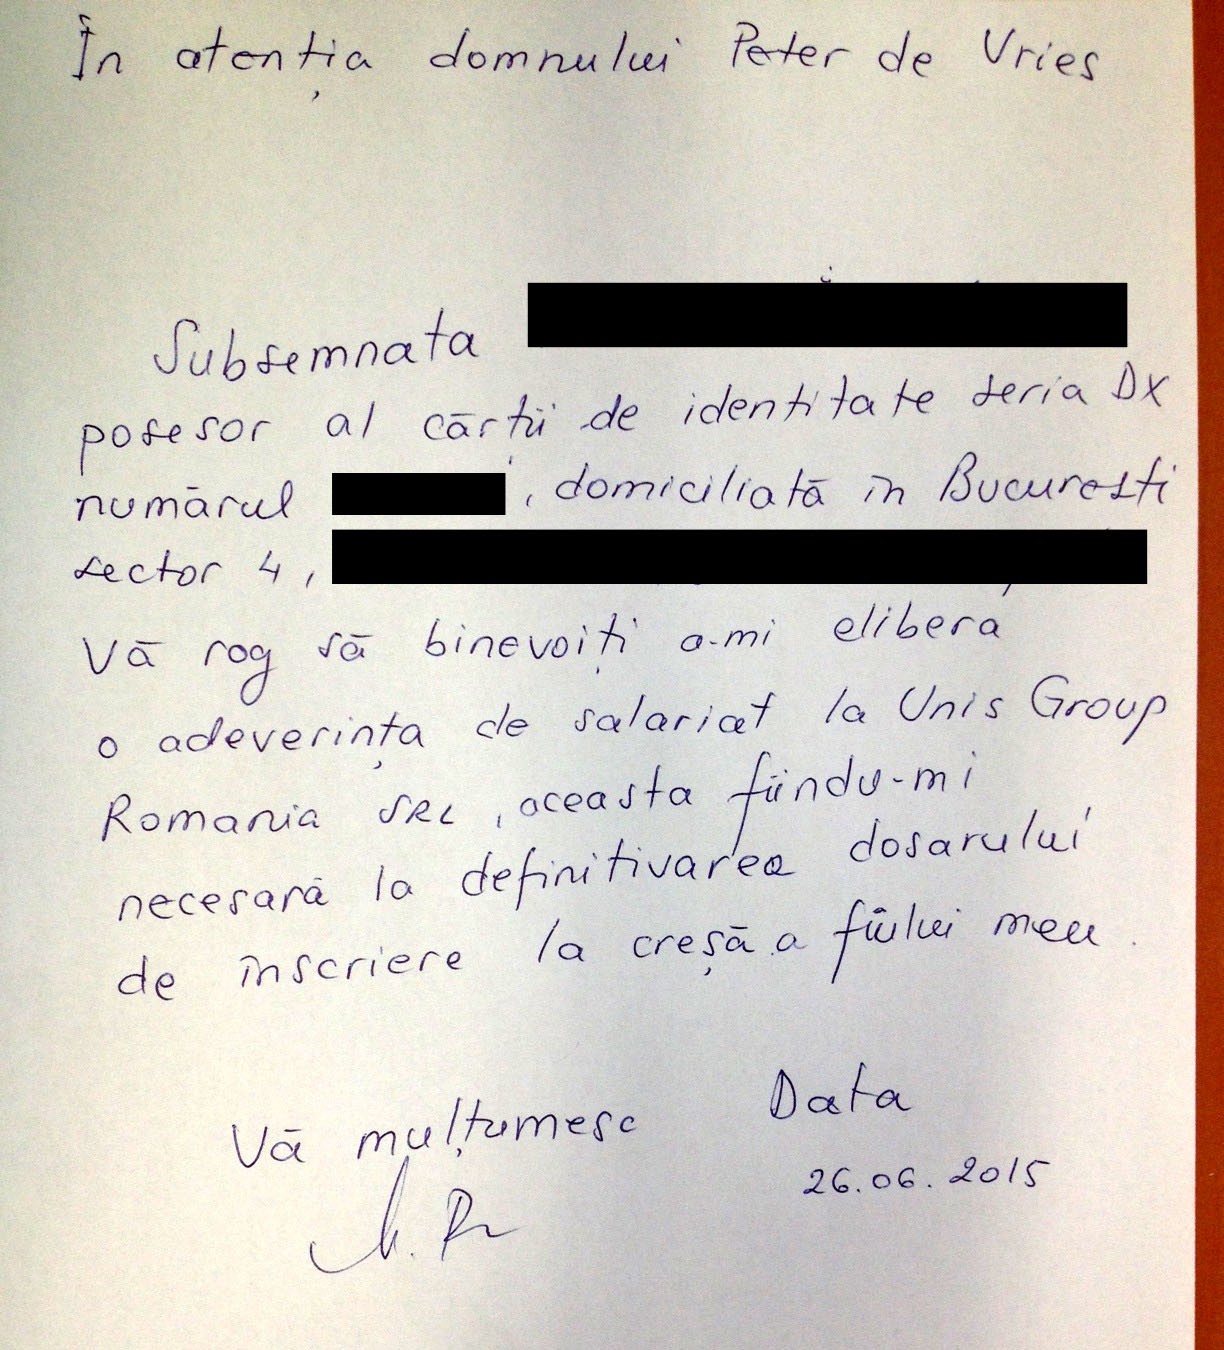 În atenția domnului Peter de Vries
Subsemnata
posesor al cărții de identitate seria DX
numărul , domiciliată în București
sector 4,
Vă rog să binevoiți a-mi elibera
o adeverința de salariat la Unis Group
Romania SRL, aceasta fiindu-mi
necesară la definitivarea dosarului
de înscriere la creșă a fiului meu.
Vă mulțumesc
Data
26.06.2015